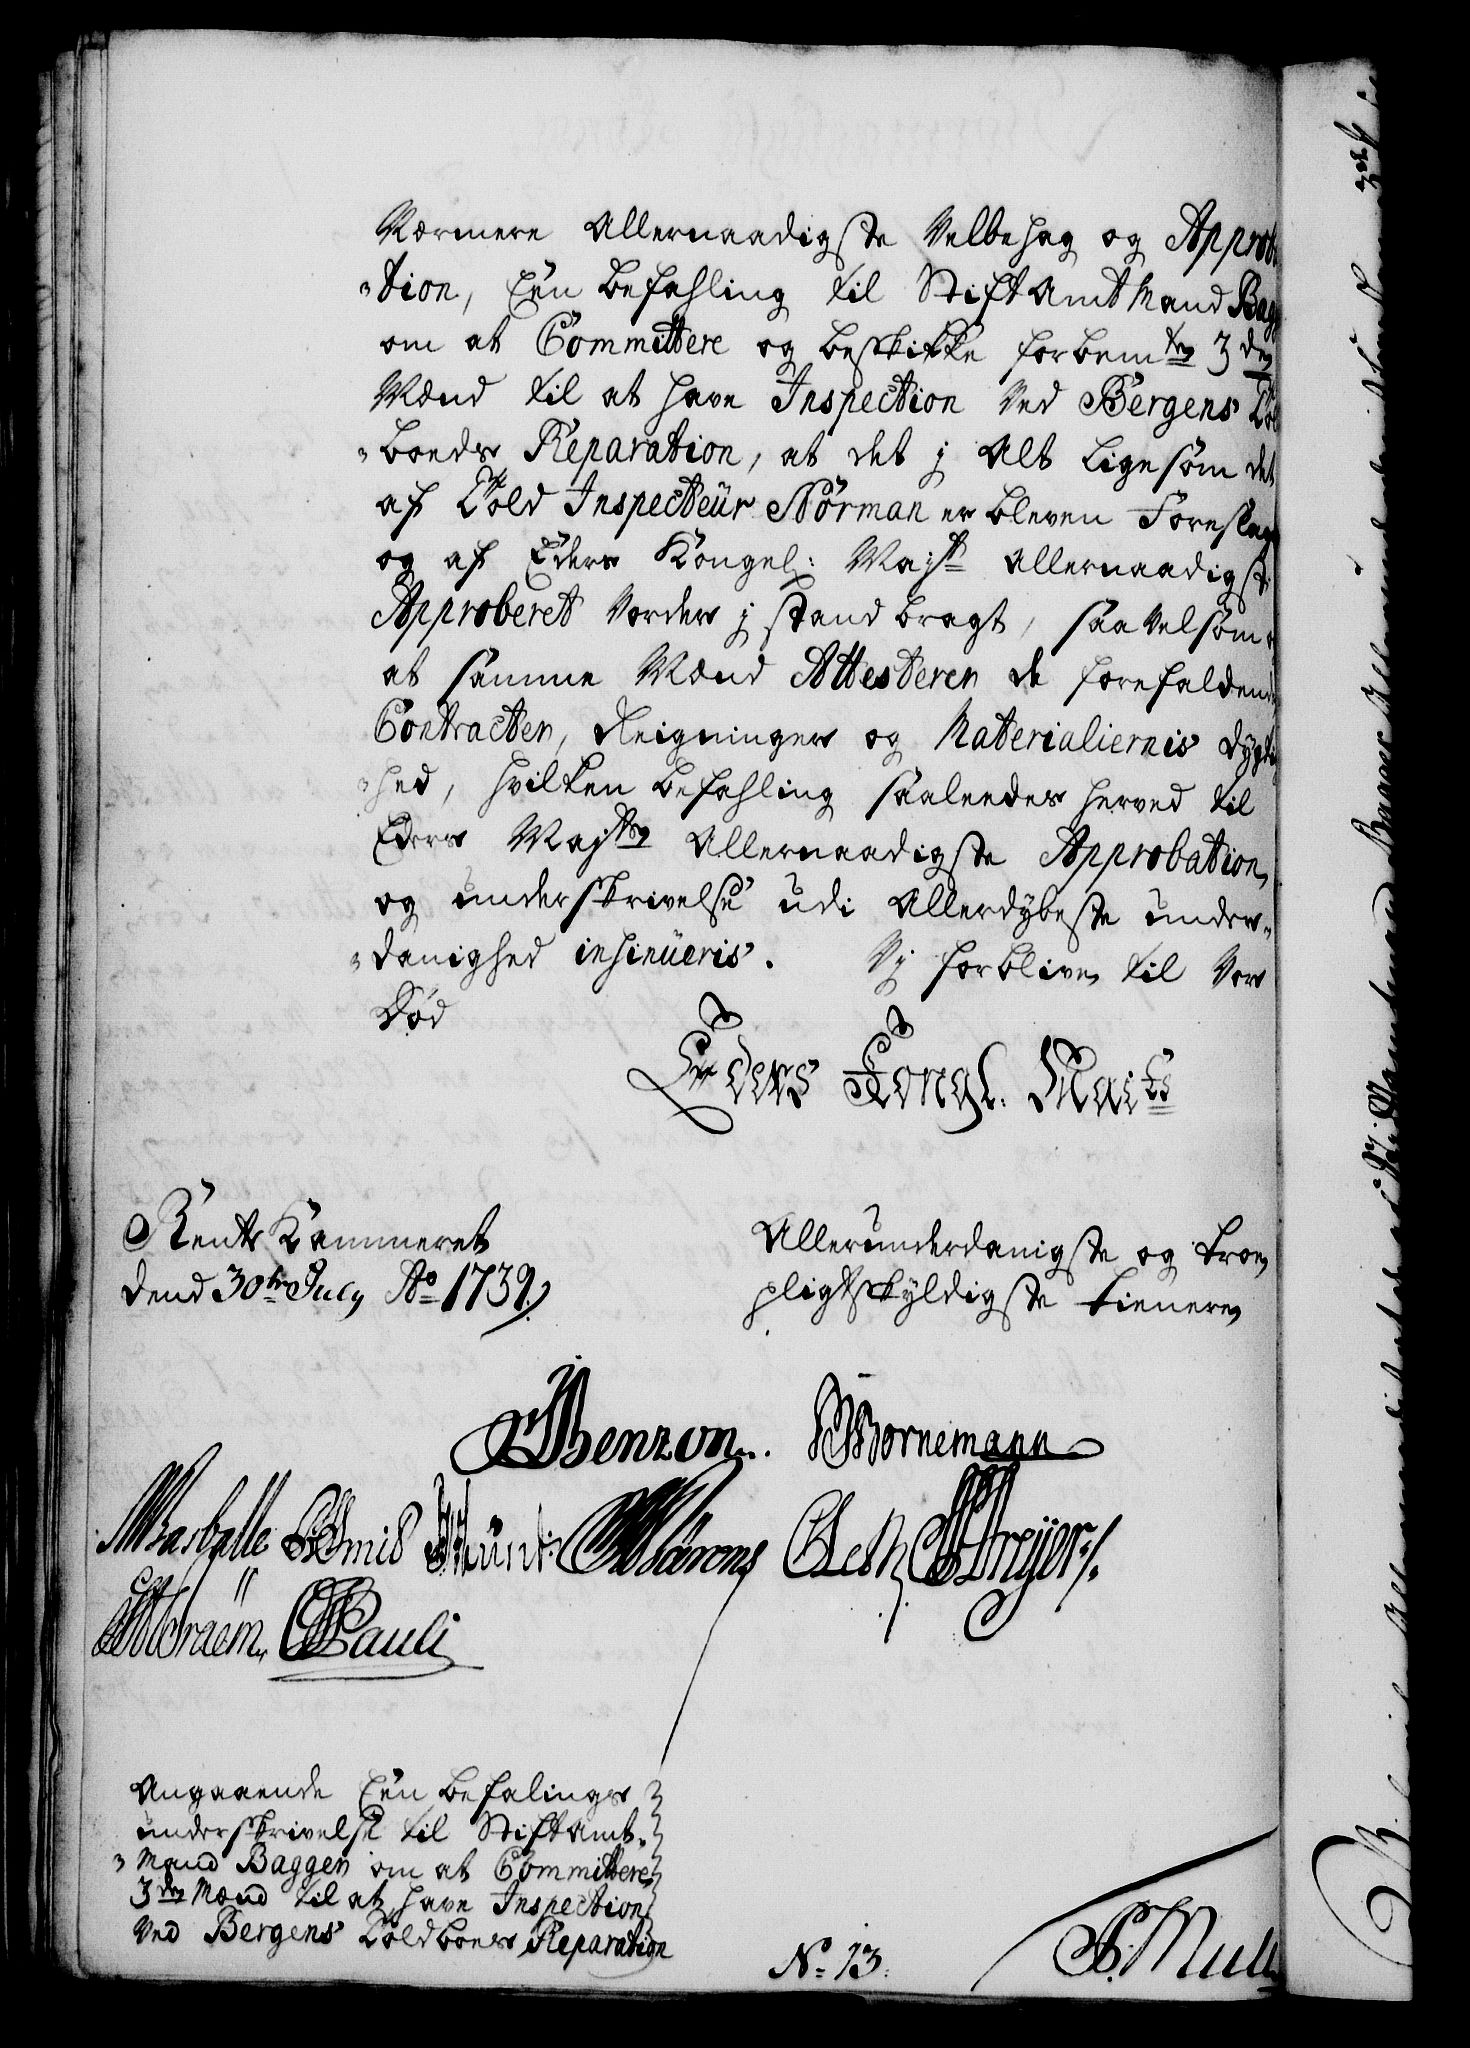 Nærmere Allernaadigste Velbehag og Approba
tion, Een Befahling til Stiftamtmand Bagg
om at Committere og beskikke forbemte 3de
Mænd til at have Inspection ved Bergens Tol
boeds Reparation, at det j Alt ligesom det
af Told Inspecteur Nørman er bleven Foreslag
og af Eders Kongel: Majst Allernaadigst
Approberet vorder j stand bragt, saavelsom
at samme Mænd Attesterer de forefaldende
Contracter, Reigninger og Materialiernis dygtig
hed, hvilken Befahling saaleedes herved til
Eders Majts Allernaadigste Approbation,
og underskrivelse udi Allerdybeste under-
danighed insinueris. Vj forblive til Vor
Død
Eders Kongl. Maits
Rente Kammeret
Dend 30te July Ao 1739.
Allerunderdanigste og troe
pligtskyldigste tienere
Benzon. Bornemann
Dreyer
Pauli
Angaaende Een Befalings
underskrivelse til Stiftamt-
Mand Baggen om at Committere
3de Mænd til at have Inspection
ved Bergens Toldboes Reparation
No 13.
Mull